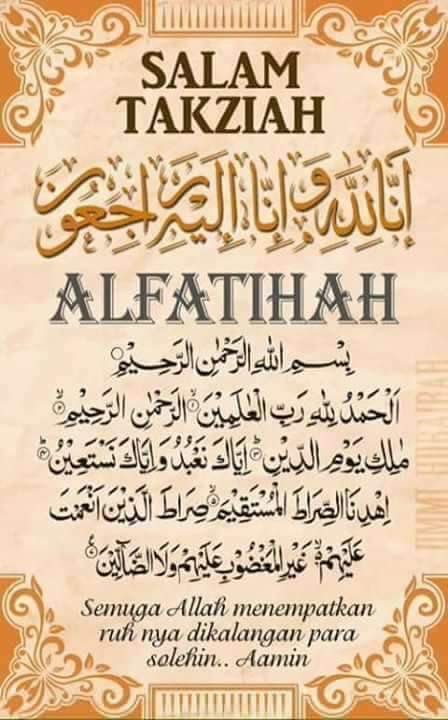 SALAM
TAKZIAH
إِنَّا لِلَّٰهِ وَإِنَّا إِلَيْهِ رَاجِعُونَ
ALFATIHAH
بِسْمِ اللهِ الرَّحْمٰنِ الرَّحِيْمِ
اَلْحَمْدُ لِلّٰهِ رَبِّ الْعٰلَمِيْنَ ۙ الرَّحْمٰنِ الرَّحِيْمِ ۙ
مٰلِكِ يَوْمِ الدِّيْنِ ۗ اِيَّاكَ نَعْبُدُ وَاِيَّاكَ نَسْتَعِيْنُ ۗ
اِهْدِنَا الصِّرَاطَ الْمُسْتَقِيْمَ ۙ صِرَاطَ الَّذِيْنَ اَنْعَمْتَ
عَلَيْهِمْ ۙ غَيْرِ الْمَغْضُوْبِ عَلَيْهِمْ وَلَا الضَّآلِّيْنَ
Semuga Allah menempatkan
ruh nya dikalangan para
solehin.. Aamin